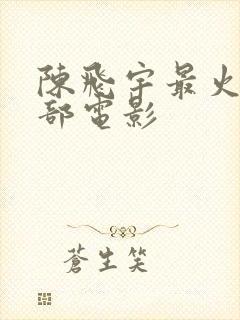 陳飛宇最火
部電影
蒼生笑